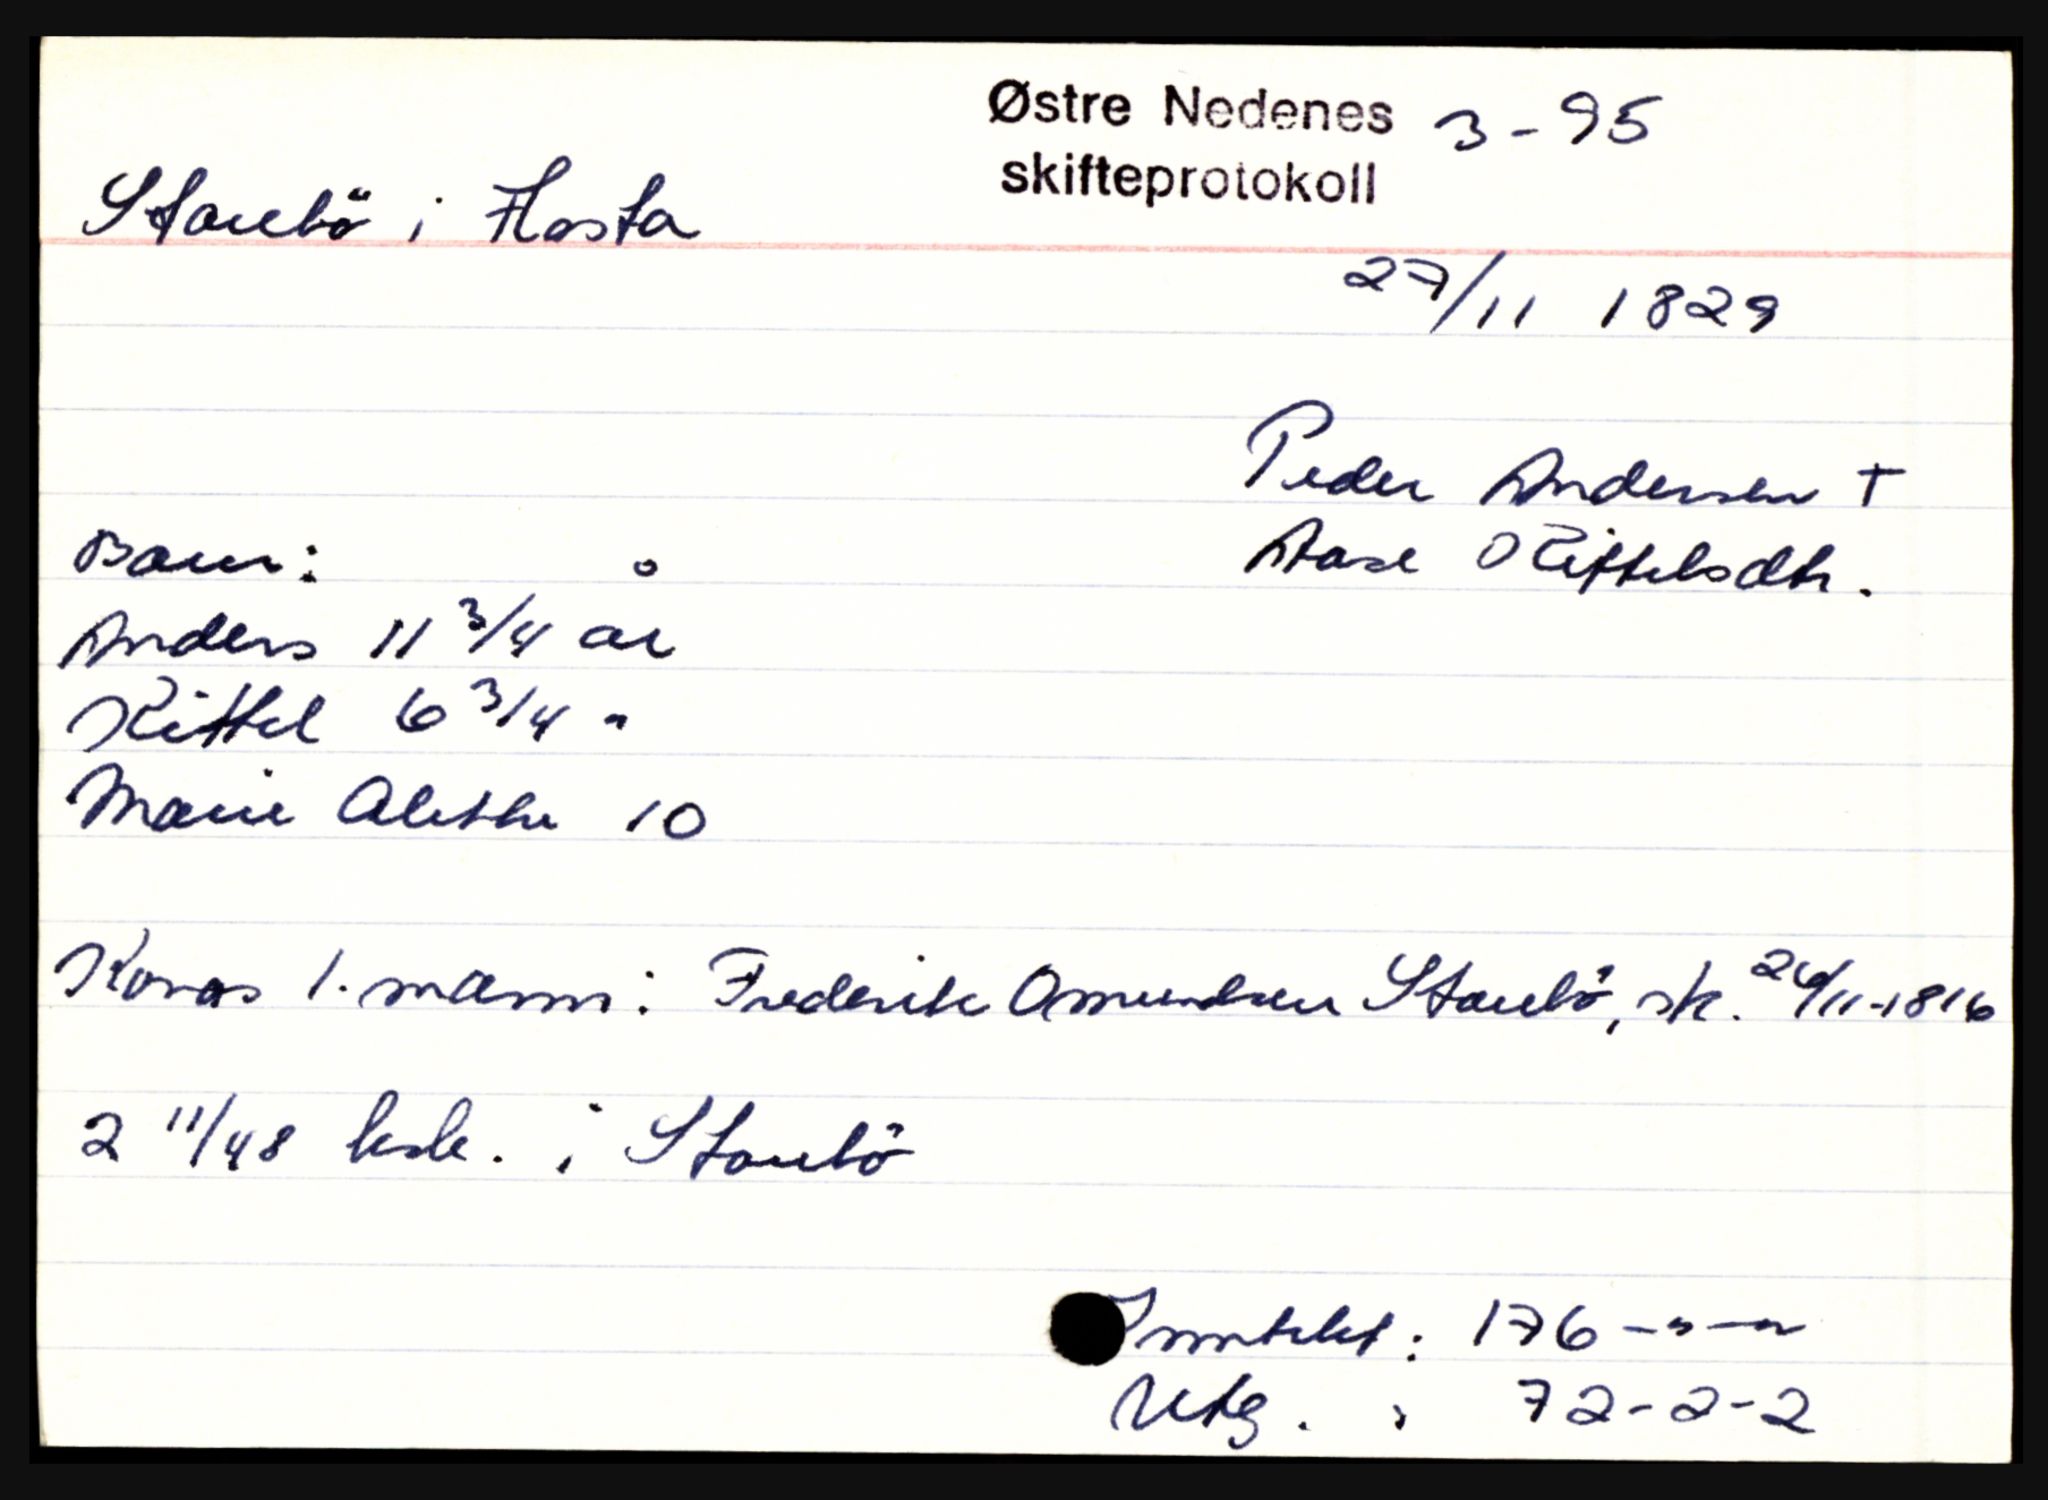 Østre Nedenes 3-95
skifteprotokoll
Staubö i Flosta
27/11 1829
Peder Andersen †
Aase Kittelsdtr.
Barn:
Anders 11 3/4 år
Kittel 6 3/4 "
Marie Alethe 10
Konas 1. mann: Frederik Amundsen Staubö, sk. 24/11-1816
2 11/48 lisb. i Staubö
Inntekt: 176-"-"
Utg. : 72-2-2